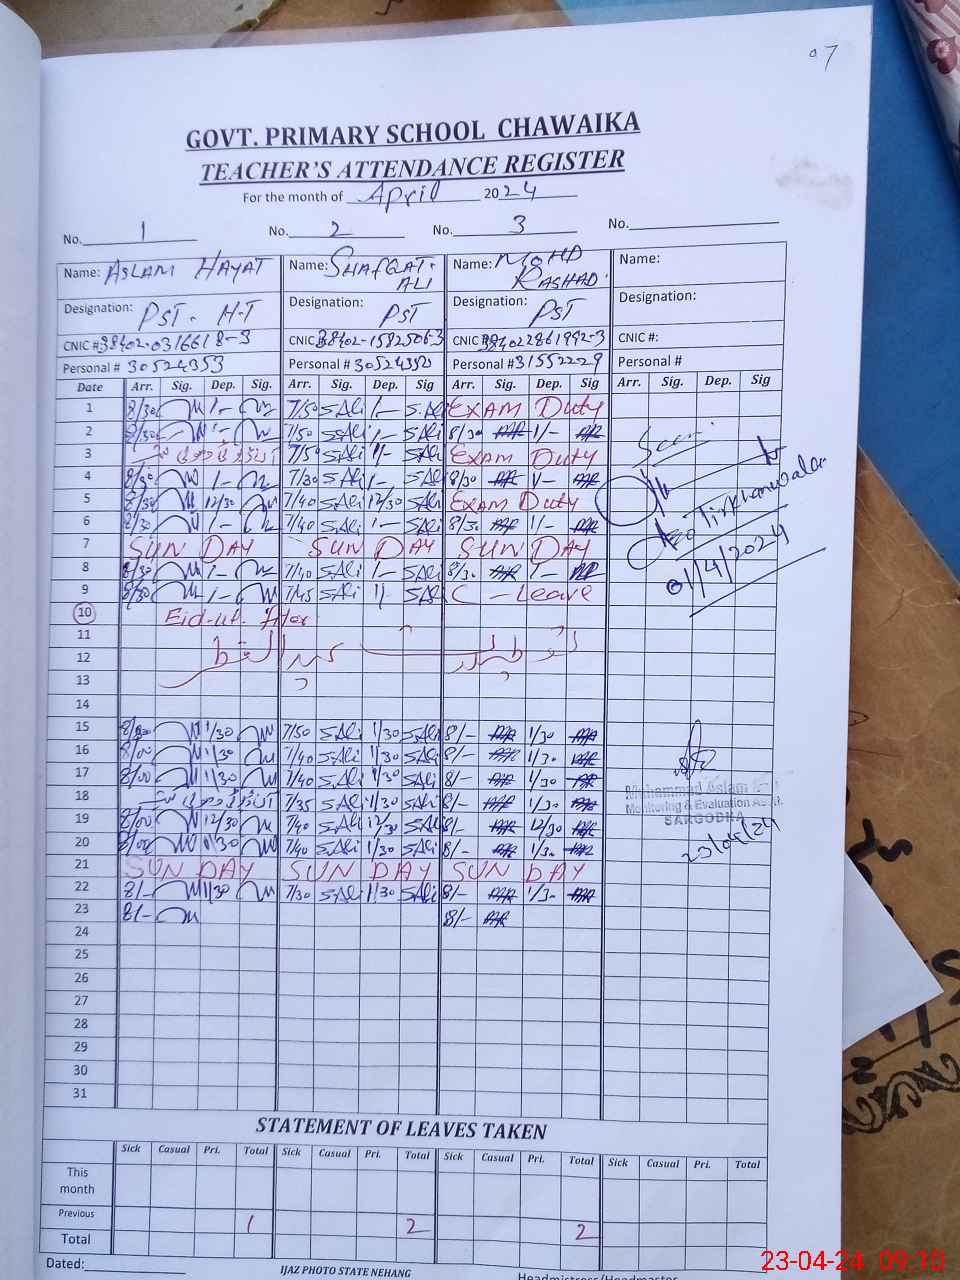 07
GOVT. PRIMARY SCHOOL CHAWAIKA
TEACHER'S ATTENDANCE REGISTER
For the month of April 2024
No. 1 No. 2 No. 3 No.
Name: ASLAM HAYAT Name: SHAFQAT ALI Name: MOHD RASHAD Name:
Designation: PST. H-T Designation: PST Designation: PST Designation:
CNIC #38402-0316618-3 CNIC 38402-1582506-3 CNIC 38402-2861992-3 CNIC #:
Personal # 30524353 Personal # 30524350 Personal #31552229 Personal #
Date Arr. Sig. Dep. Sig. Arr. Sig. Dep. Sig Arr. Sig. Dep. Sig Arr. Sig. Dep. Sig
1 8/30 1- 7/50 S.Ali 1- S.Ali EXAM Duty
2 8/30 1- 7/50 S.Ali 1- S.Ali 8/30 1/-
3 7/50 S.Ali 1/- S.Ali EXAM Duty
4 8/30 1- 7/30 S.Ali 1- S.Ali 8/30 1/-
5 8/30 12/30 7/40 S.Ali 12/30 S.Ali Exam Duty
6 8/30 1- 7/40 S.Ali 1- S.Ali 8/30 1/-
7 SUN DAY SUN DAY SUN DAY
8 8/30 1- 7/40 S.Ali 1- S.Ali 8/30 1-
9 8/30 1- 7/45 S.Ali 1/- S.Ali C - Leave
10 Eid-ul-Fiter
11
12
13
14
15 8/00 1/30 7/50 S.Ali 1/30 S.Ali 8/- 1/30
16 8/00 1/30 7/40 S.Ali 1/30 S.Ali 8/- 1/30
17 8/00 1/30 7/40 S.Ali 1/30 S.Ali 8/- 1/30
18 7/35 S.Ali 1/30 S.Ali 8/- 1/30
19 8/00 12/30 7/40 S.Ali 12/30 S.Ali 8/- 12/30
20 8/00 1/30 7/40 S.Ali 1/30 S.Ali 8/- 1/30
21 SUN DAY SUN DAY SUN DAY
22 8/- 1/30 7/30 S.Ali 1/30 S.Ali 8/- 1/30
23 8/- 8/-
24
25
26
27
28
29
30
31
Seen
AEO Tirkhanwala
01/4/2024
Muhammad Aslam
Monitoring & Evaluation Asstt.
SARGODHA
23/04/24
STATEMENT OF LEAVES TAKEN
Sick Casual Pri. Total Sick Casual Pri. Total Sick Casual Pri. Total Sick Casual Pri. Total
This month
Previous 1 2 2
Total
Dated: IJAZ PHOTO STATE NEHANG Headmistress/Headmaster
23-04-24 09:10